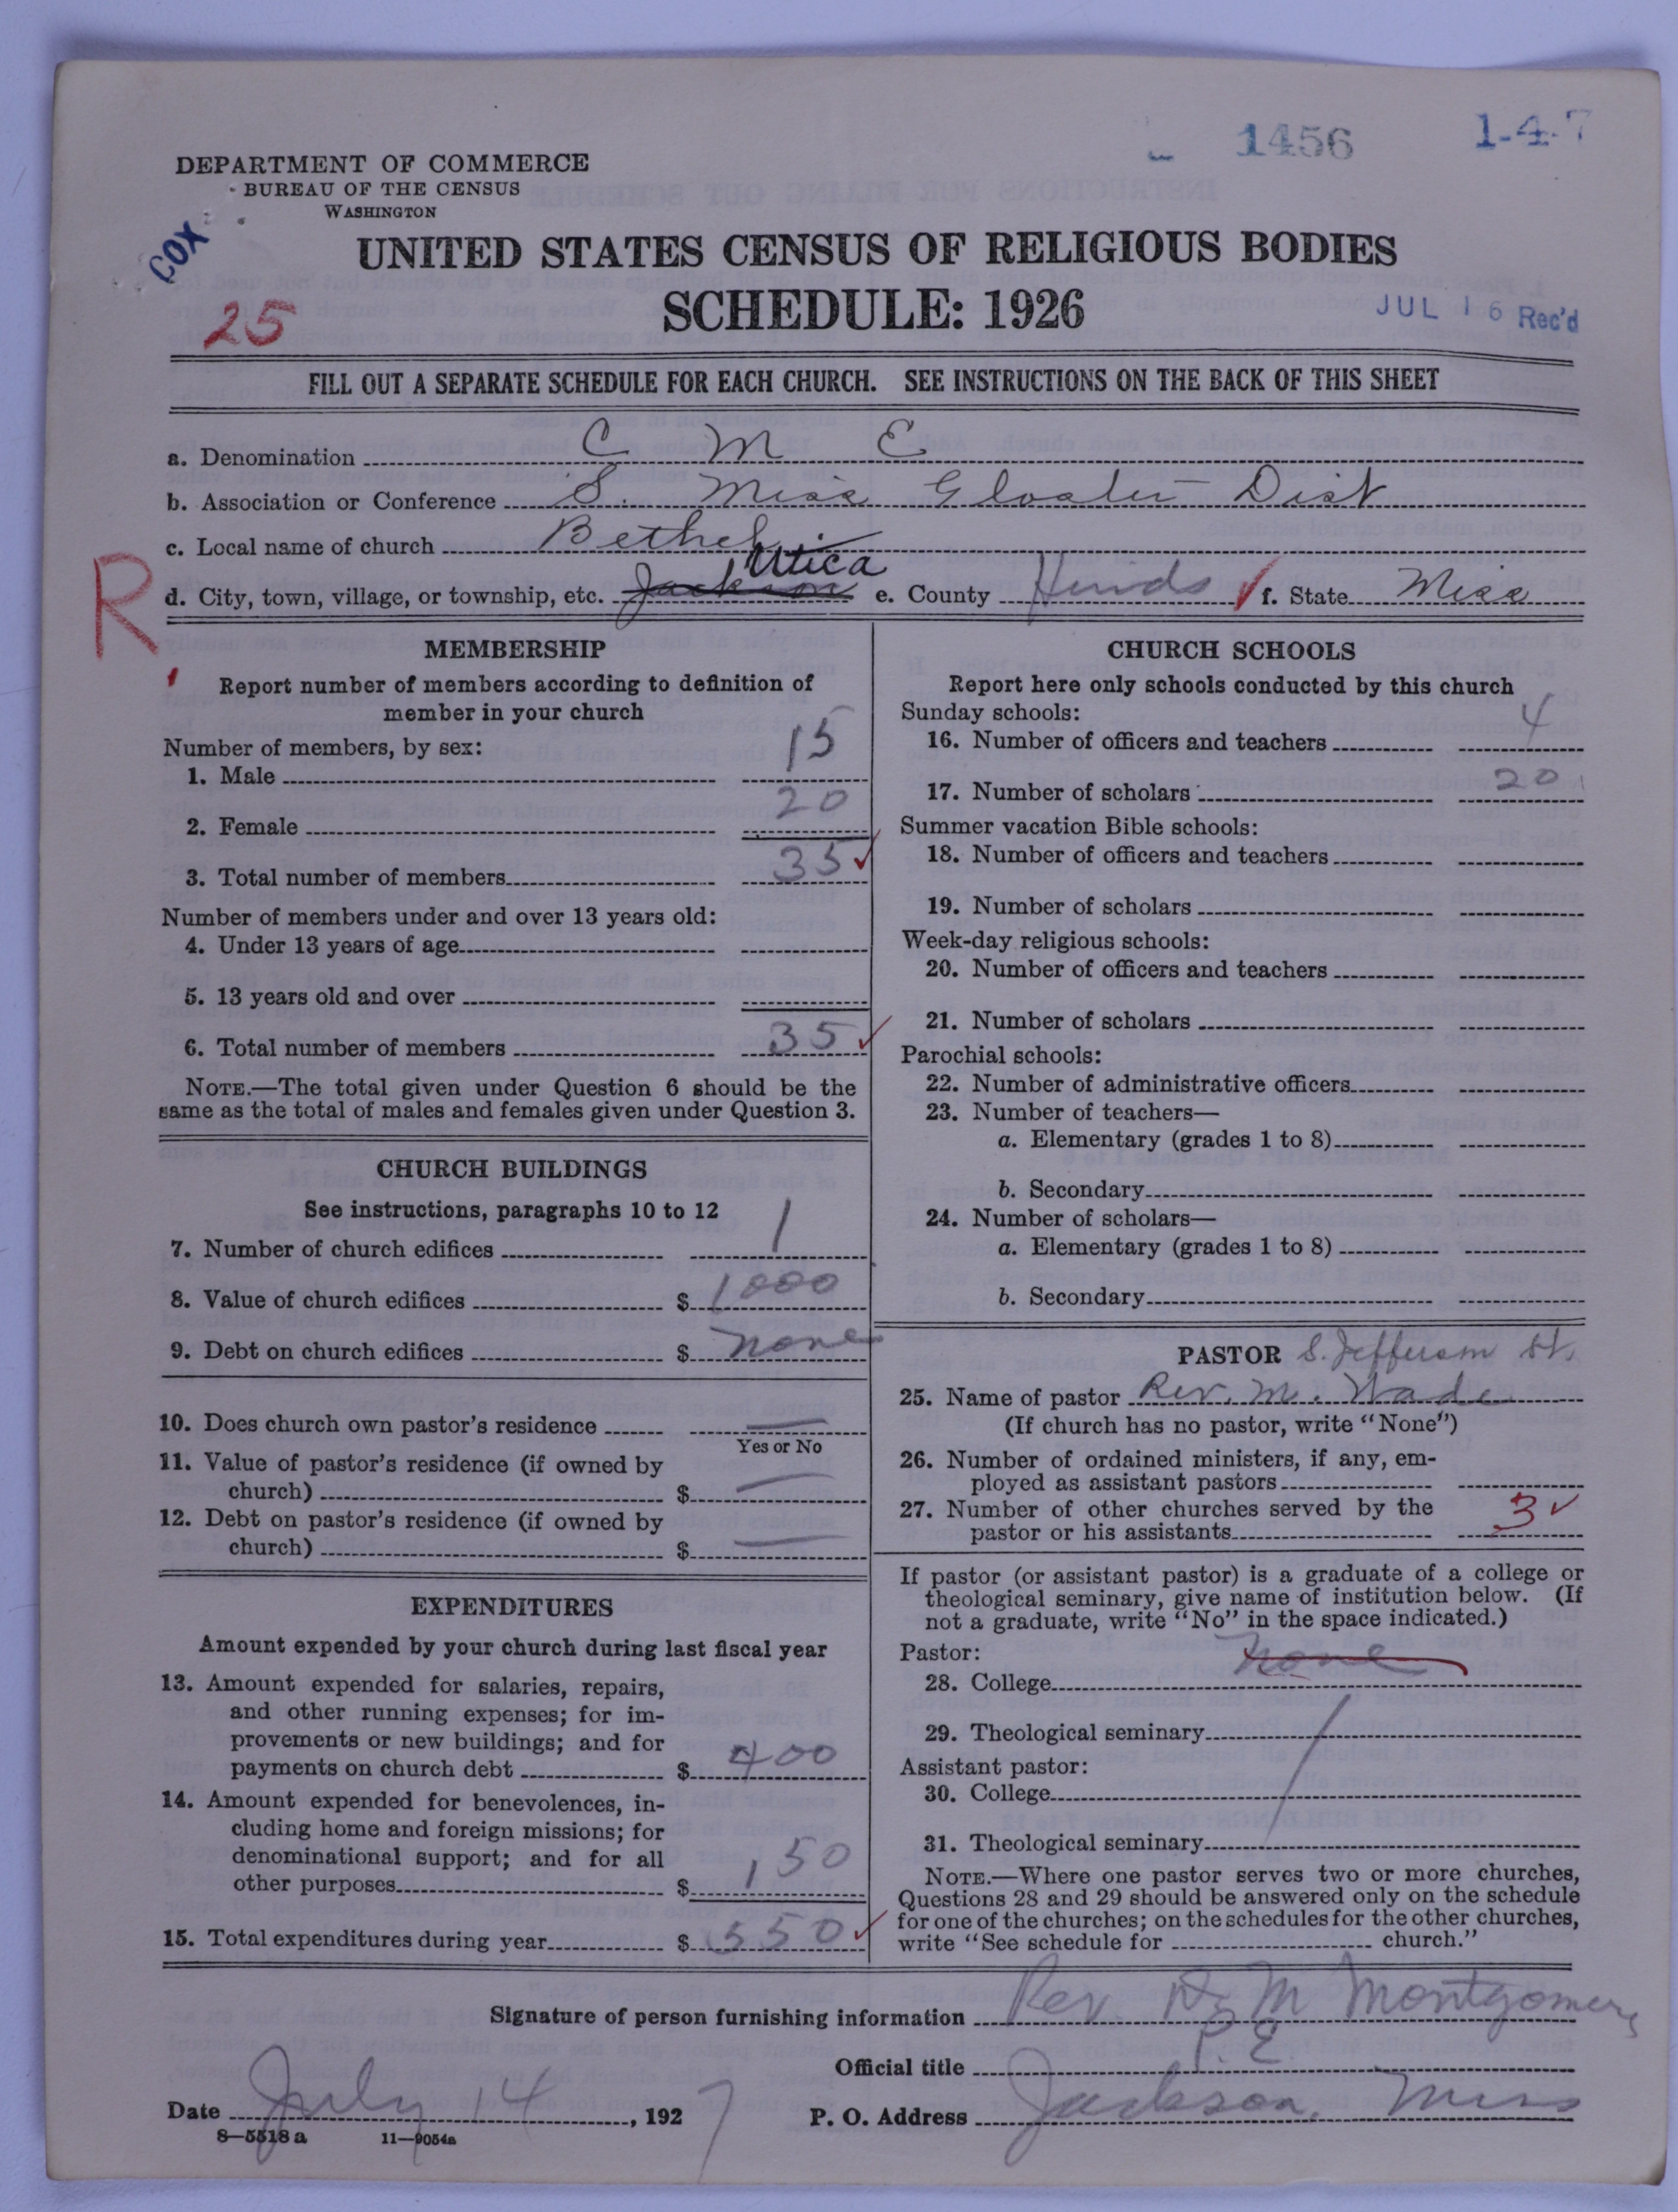 1456
1-4-7
DEPARTMENT OF COMMERCE
BUREAU OF THE CENSUS
WASHINGTON
COX
UNITED STATES CENSUS OF RELIGIOUS BODIES
SCHEDULE: 1926
25
JUL 16 Rec'd
FILL OUT A SEPARATE SCHEDULE FOR EACH CHURCH. SEE INSTRUCTIONS ON THE BACK OF THIS SHEET
a. Denomination C M E
b. Association or Conference S. Miss Gloster Dist
c. Local name of church Bethel
d. City, town, village, or township, etc. Jackson Utica e. County Hinds f. State Miss
R
MEMBERSHIP
Report number of members according to definition of
member in your church
Number of members, by sex:
1. Male 15
2. Female 20
3. Total number of members 35
Number of members under and over 13 years old:
4. Under 13 years of age
5. 13 years old and over
6. Total number of members 35
NOTE.—The total given under Question 6 should be the
same as the total of males and females given under Question 3.
CHURCH BUILDINGS
See instructions, paragraphs 10 to 12
7. Number of church edifices 1
8. Value of church edifices $ 1000
9. Debt on church edifices $ none
10. Does church own pastor's residence
Yes or No
11. Value of pastor's residence (if owned by
church) $
12. Debt on pastor's residence (if owned by
church) $
EXPENDITURES
Amount expended by your church during last fiscal year
13. Amount expended for salaries, repairs,
and other running expenses; for im-
provements or new buildings; and for
payments on church debt $ 400
14. Amount expended for benevolences, in-
cluding home and foreign missions; for
denominational support; and for all
other purposes $ 150
15. Total expenditures during year $ 550
CHURCH SCHOOLS
Report here only schools conducted by this church
Sunday schools:
16. Number of officers and teachers 4
17. Number of scholars 20
Summer vacation Bible schools:
18. Number of officers and teachers
19. Number of scholars
Week-day religious schools:
20. Number of officers and teachers
21. Number of scholars
Parochial schools:
22. Number of administrative officers
23. Number of teachers—
a. Elementary (grades 1 to 8)
b. Secondary
24. Number of scholars—
a. Elementary (grades 1 to 8)
b. Secondary
PASTOR S. Jefferson St.
25. Name of pastor Rev. M. Wade
(If church has no pastor, write "None")
26. Number of ordained ministers, if any, em-
ployed as assistant pastors
27. Number of other churches served by the
pastor or his assistants 3
If pastor (or assistant pastor) is a graduate of a college or
theological seminary, give name of institution below. (If
not a graduate, write "No" in the space indicated.)
Pastor:
28. College none
29. Theological seminary
Assistant pastor:
30. College
31. Theological seminary
NOTE.—Where one pastor serves two or more churches,
Questions 28 and 29 should be answered only on the schedule
for one of the churches; on the schedules for the other churches,
write "See schedule for church."
Signature of person furnishing information Rev. M Montgomery
Official title P. E.
Date July 14, 1927 P. O. Address Jackson, Miss
8—5518 a 11—9054a